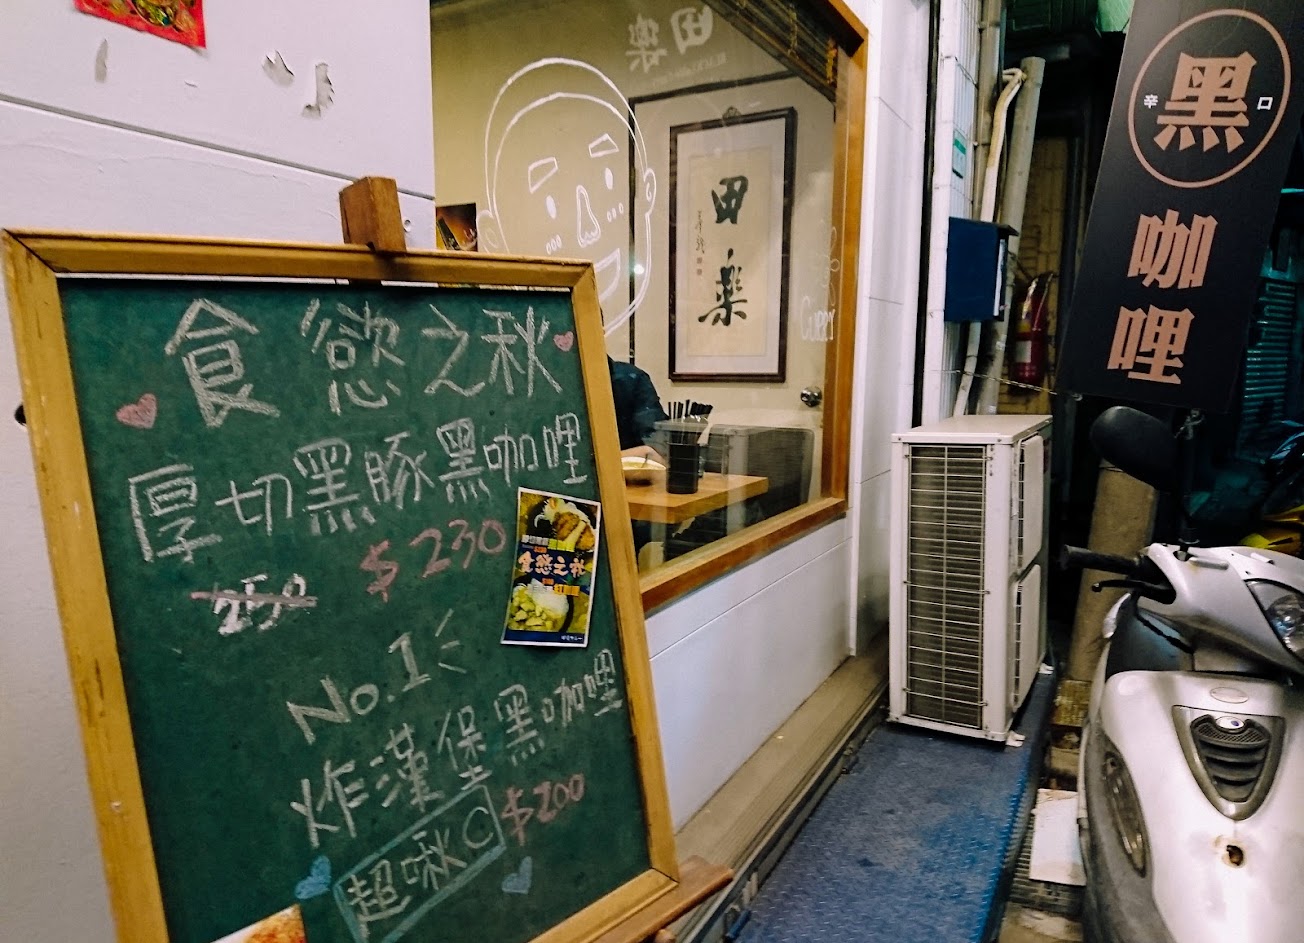 食慾之秋
厚切黑豚黑咖哩
250 $230
No.1
炸漢堡黑咖哩
$200
超啾C
食慾之秋
田樂
田樂
Curry
辛 黑 口
咖哩